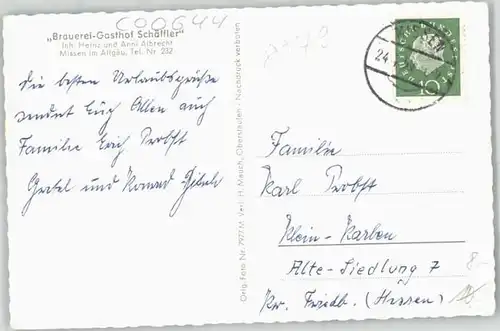 C00644
„Brauerei-Gasthof Schäffler"
Inh. Heinz und Anni Albrecht
Missen im Allgäu, Tel. Nr 232
die besten Urlaubsgrüße
sendet Euch Allen auch
Familie Erich Probst
Gretel und Konrad
Orig. Foto Nr. 7977 M Verl. H. Mauch, Oberstaufen - Nachdruck verboten
24
DEUTSCHE BUNDESPOST
10
Familie
Karl Probst
Klein-Karben
Alte-Siedlung 7
Kr. Friedb. (Hessen)
8-